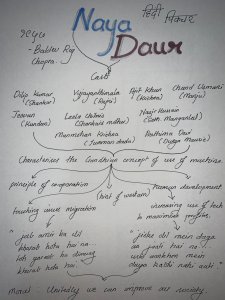 हिंदी पिक्चर
Naya
Daur
१९५७
- Baldev Raj
Chopra.
Cast
Dilip Kumar
(Shankar)
Vyjayanthimala
(Rajni)
Ajit Khan
(Krishna)
Chand Usmani
(Manju)
Jeevan
(Kundan)
Leela Chitnis
(Shankar's mother)
Nazir Hussain
(Seth Maganlal)
Manmohan Krishna
(Jumman dada)
Pratima Devi
Characterises the Gandhian concept of use of machine.
principle of cooperation
human development
touching issue migration
increasing use of tech
to maximise profits.
kharab hota hai na..
toh garib ka dimag
kharab hota hai."
"jiske dil mein daya
na pali hai na..
daya kabhi nahi aati."
Moral: Unitedly we can improve our society.